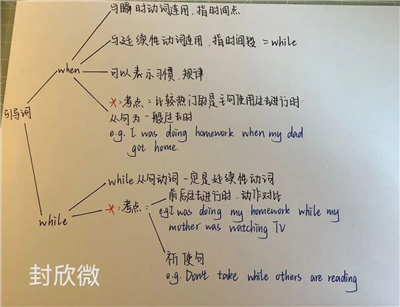 与瞬时动词连用,指时间点
与延续性动词连用,指时间段 =while
when
可以表示习惯、规律
*:考点:比较热门的是主句使用过去进行时
从句为一般过去时
引导词
e.g. I was doing homework when my dad
got home.
while 从句动词一定是延续性动词
while
*:考点:
前后过去进行时,动作对比
e.g I was doing my homework while my
mother was watching TV
祈使句
e.g. Don't take while others are reading
封欣微